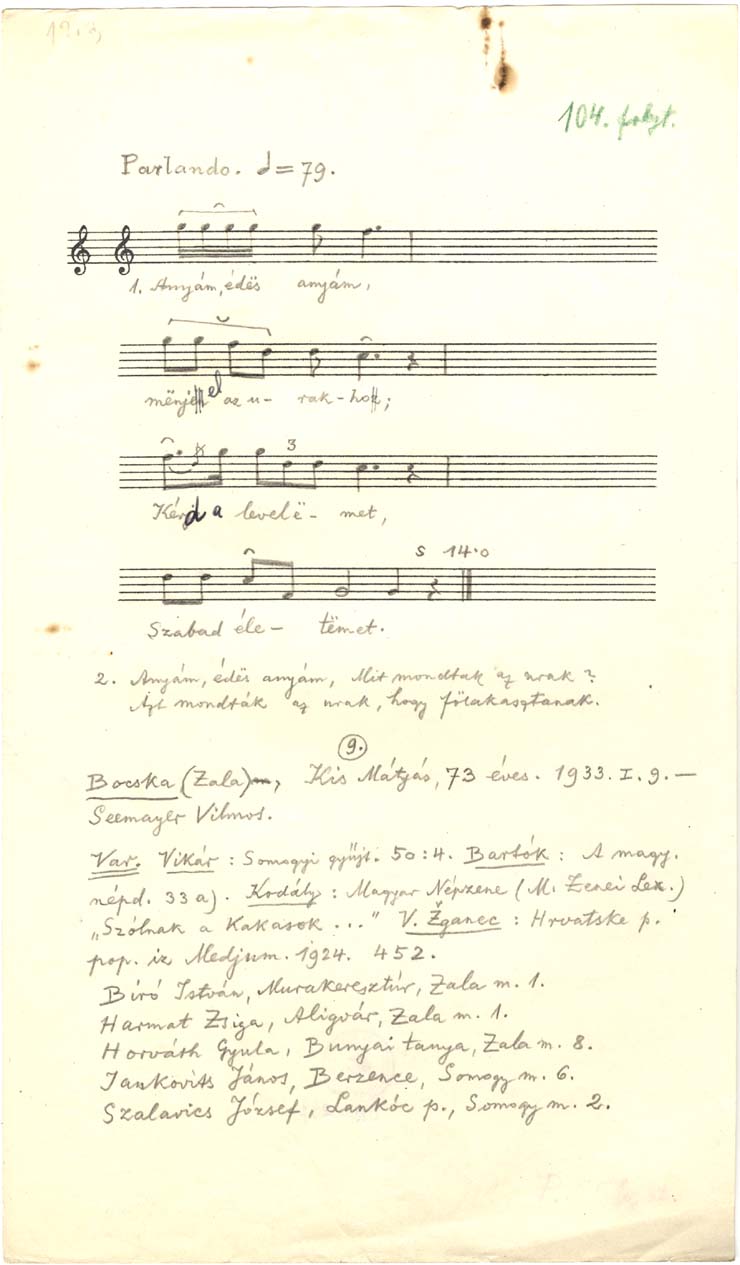 104. folyt.
Parlando. = 79.
1. Anyám, édës anyám,
mënjel az u- rak-ho;
3
Kérd a levelë- met,
S 14.0
Szabad éle- tëmet.
2. Anyám, édës anyám, Mit mondtak az urak?
Azt mondták az urak, hogy fölakasztanak.
9.
Bocska (Zala), Kis Mátyás, 73 éves. 1933. I. 9. —
Seemayer Vilmos.
Var. Vikár : Somogyi gyűjt. 50:4. Bartók : A magy.
népd. 33 a). Kodály : Magyar Népzene (M. Zenei Lex.)
„Szólnak a kakasok ..." V. Žganec : Hrvatske p.
pop. iz Medjum. 1924. 452.
Bíró István, Murakeresztúr, Zala m. 1.
Harmat Zsiga, Aligvár, Zala m. 1.
Horváth Gyula, Bunyai tanya, Zala m. 8.
Jankovits János, Berzence, Somogy m. 6.
Szalavics József, Lankóc p., Somogy m. 2.